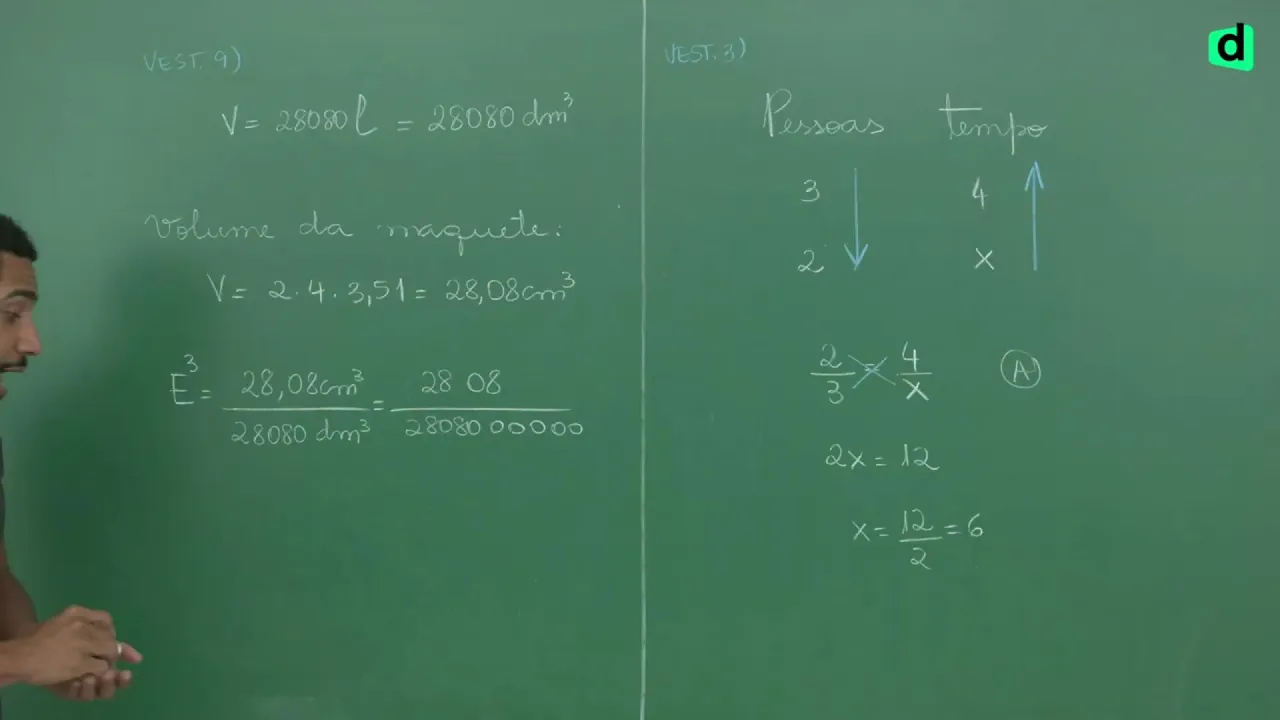 VEST. 9)
V = 28080 l = 28080 dm³
Volume da maquete:
V = 2 . 4 . 3,51 = 28,08cm³
E³ = 28,08cm³ / 28080 dm³ = 28 08 / 28080 00000
VEST. 3)
Pessoas tempo
3 4
2 x
2/3 = 4/x
A
2x = 12
x = 12/2 = 6
d